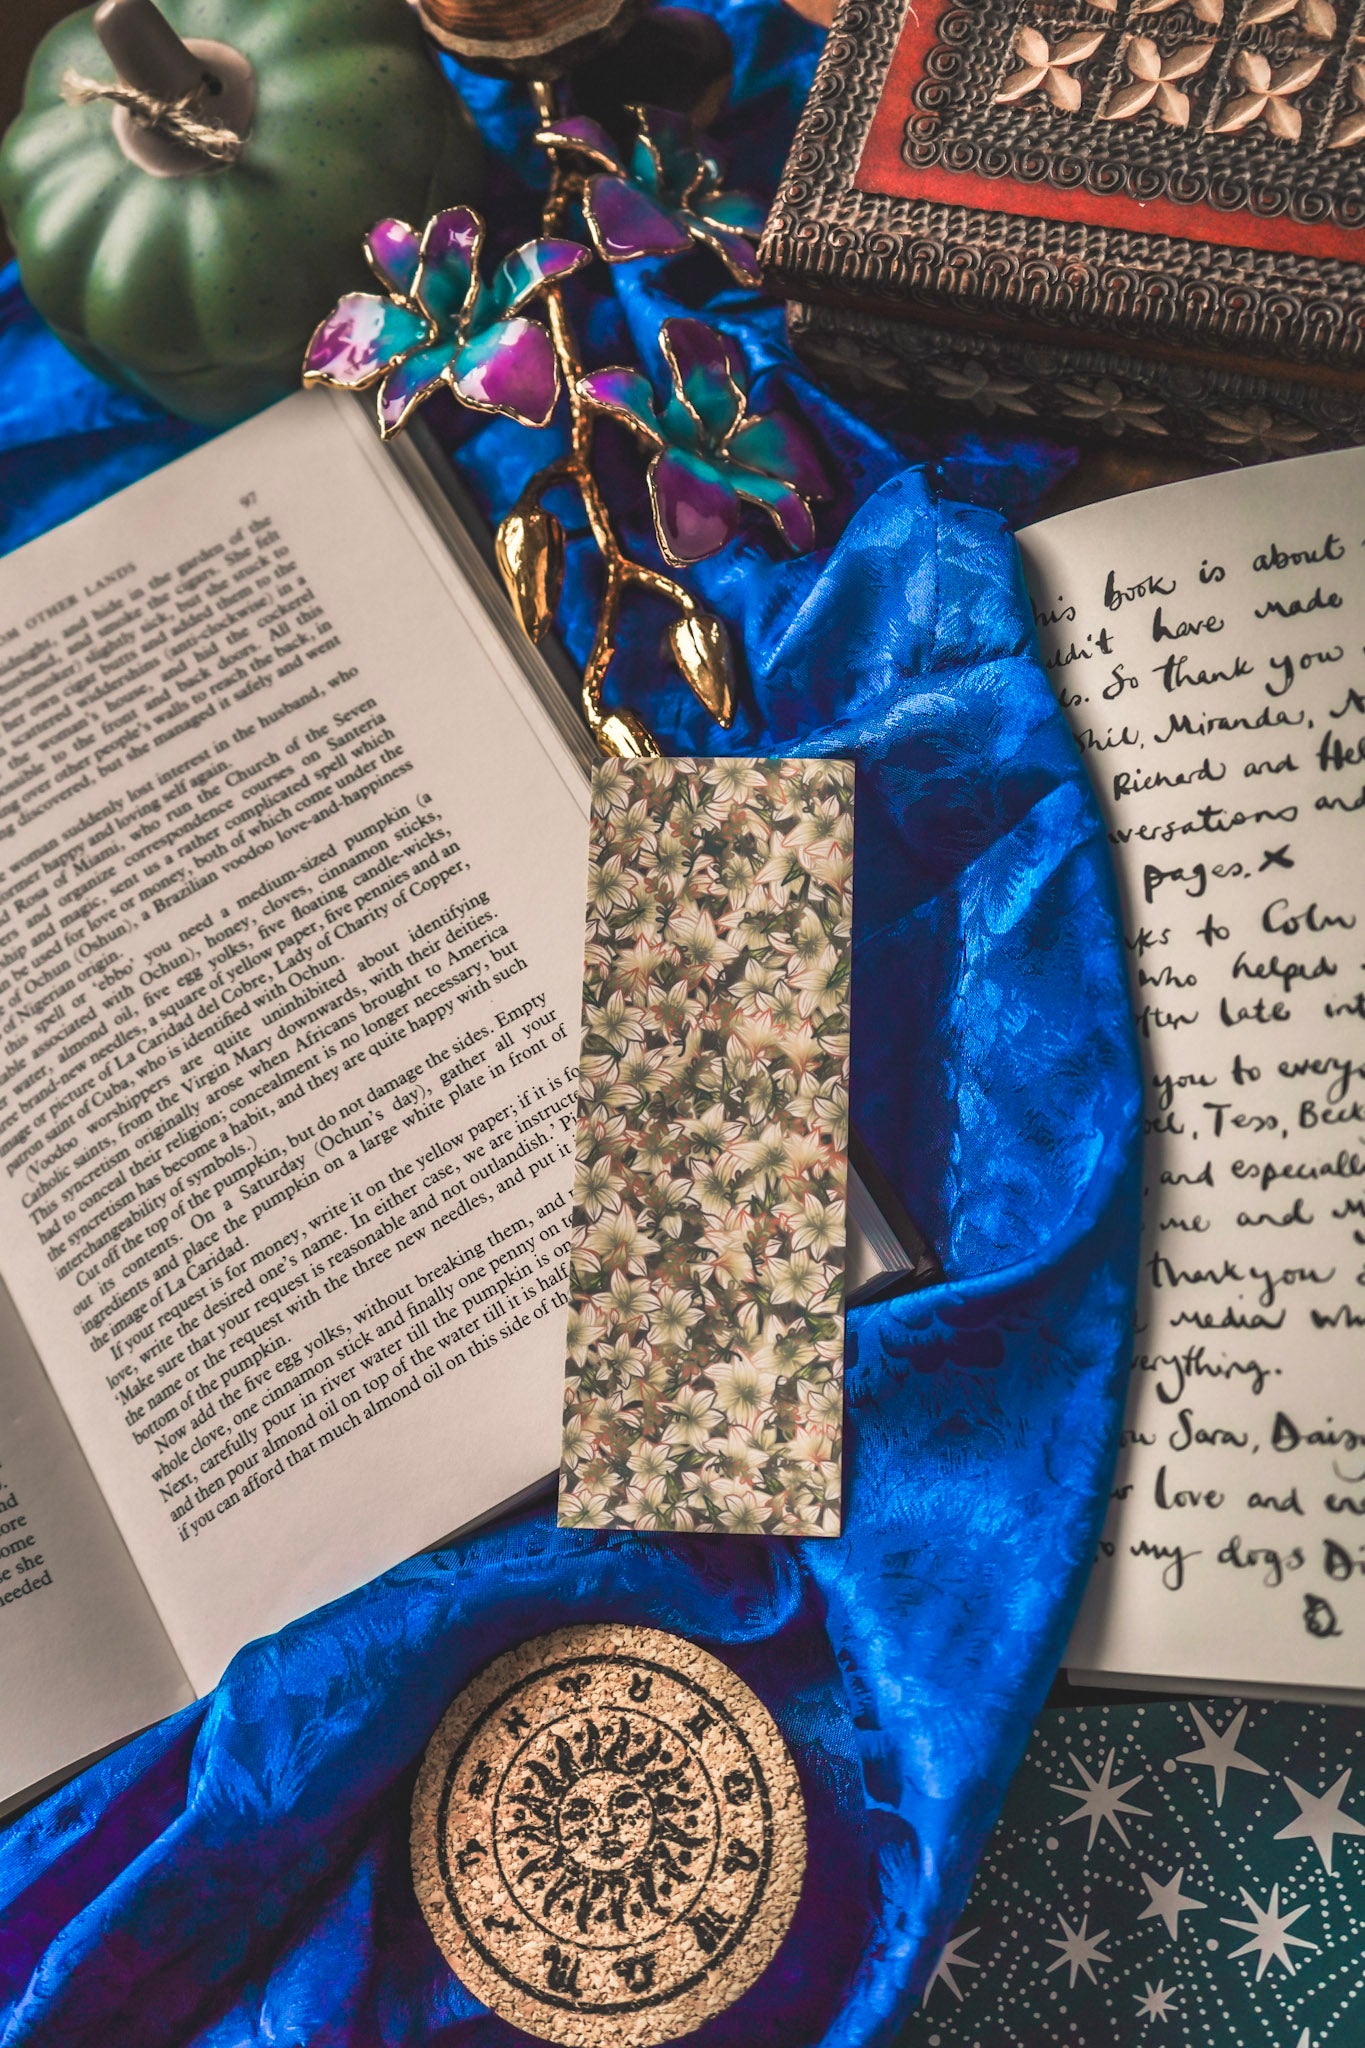 97
OM OTHER LANDS
midnight, and hide in the garden of the
husband, and smoke the cigars. She felt
on-smoker) slightly sick, but she stuck to
her own cigar butts and added them to the
scattered widdershins (anti-clockwise) in a
the woman's house, and hid the cockerel
possible to the front and back doors. All this
ng over other people's walls to reach the back, in
ng discovered, but she managed it safely and went
woman suddenly lost interest in the husband, who
former happy and loving self again.
d Rosa of Miami, who run the Church of the Seven
ers and organize correspondence courses on Santeria
ship and magic, sent us a rather complicated spell which
be used for love or money, both of which come under the
e of Ochun (Oshun), a Brazilian voodoo love-and-happiness
of Nigerian origin.
this spell or 'ebbo' you need a medium-sized pumpkin (a
able associated with Ochun), honey, cloves, cinnamon sticks,
water, almond oil, five egg yolks, five floating candle-wicks,
ree brand-new needles, a square of yellow paper, five pennies and an
image or picture of La Caridad del Cobre, Lady of Charity of Copper,
patron saint of Cuba, who is identified with Ochun.
(Voodoo worshippers are quite uninhibited about identifying
Catholic saints, from the Virgin Mary downwards, with their deities.
This syncretism originally arose when Africans brought to America
had to conceal their religion; concealment is no longer necessary, but
the syncretism has become a habit, and they are quite happy with such
interchangeability of symbols.)
Cut off the top of the pumpkin, but do not damage the sides. Empty
out its contents. On a Saturday (Ochun's day), gather all your
ingredients and place the pumpkin on a large white plate in front of
the image of La Caridad.
If your request is for money, write it on the yellow paper; if it is fo
love, write the desired one's name. In either case, we are instructe
'Make sure that your request is reasonable and not outlandish.' Pi
the name or the request with the three new needles, and put it
bottom of the pumpkin.
Now add the five egg yolks, without breaking them, and
whole clove, one cinnamon stick and finally one penny on to
Next, carefully pour in river water till the pumpkin is
and then pour almond oil on top of the water till it is half
if you can afford that much almond oil on this side of th
nd
ore
ome
se she
needed
his book is about
uldn't have made
s. So thank you
Phil, Miranda, N
Richard and Hel
versations and
pages. x
ks to Colm
who helped
ften late int
you to every
el, Tess, Beck
, and especiall
me and M
thank you
media wh
erything.
u Sara, Daisy
r love and en
o my dogs Di